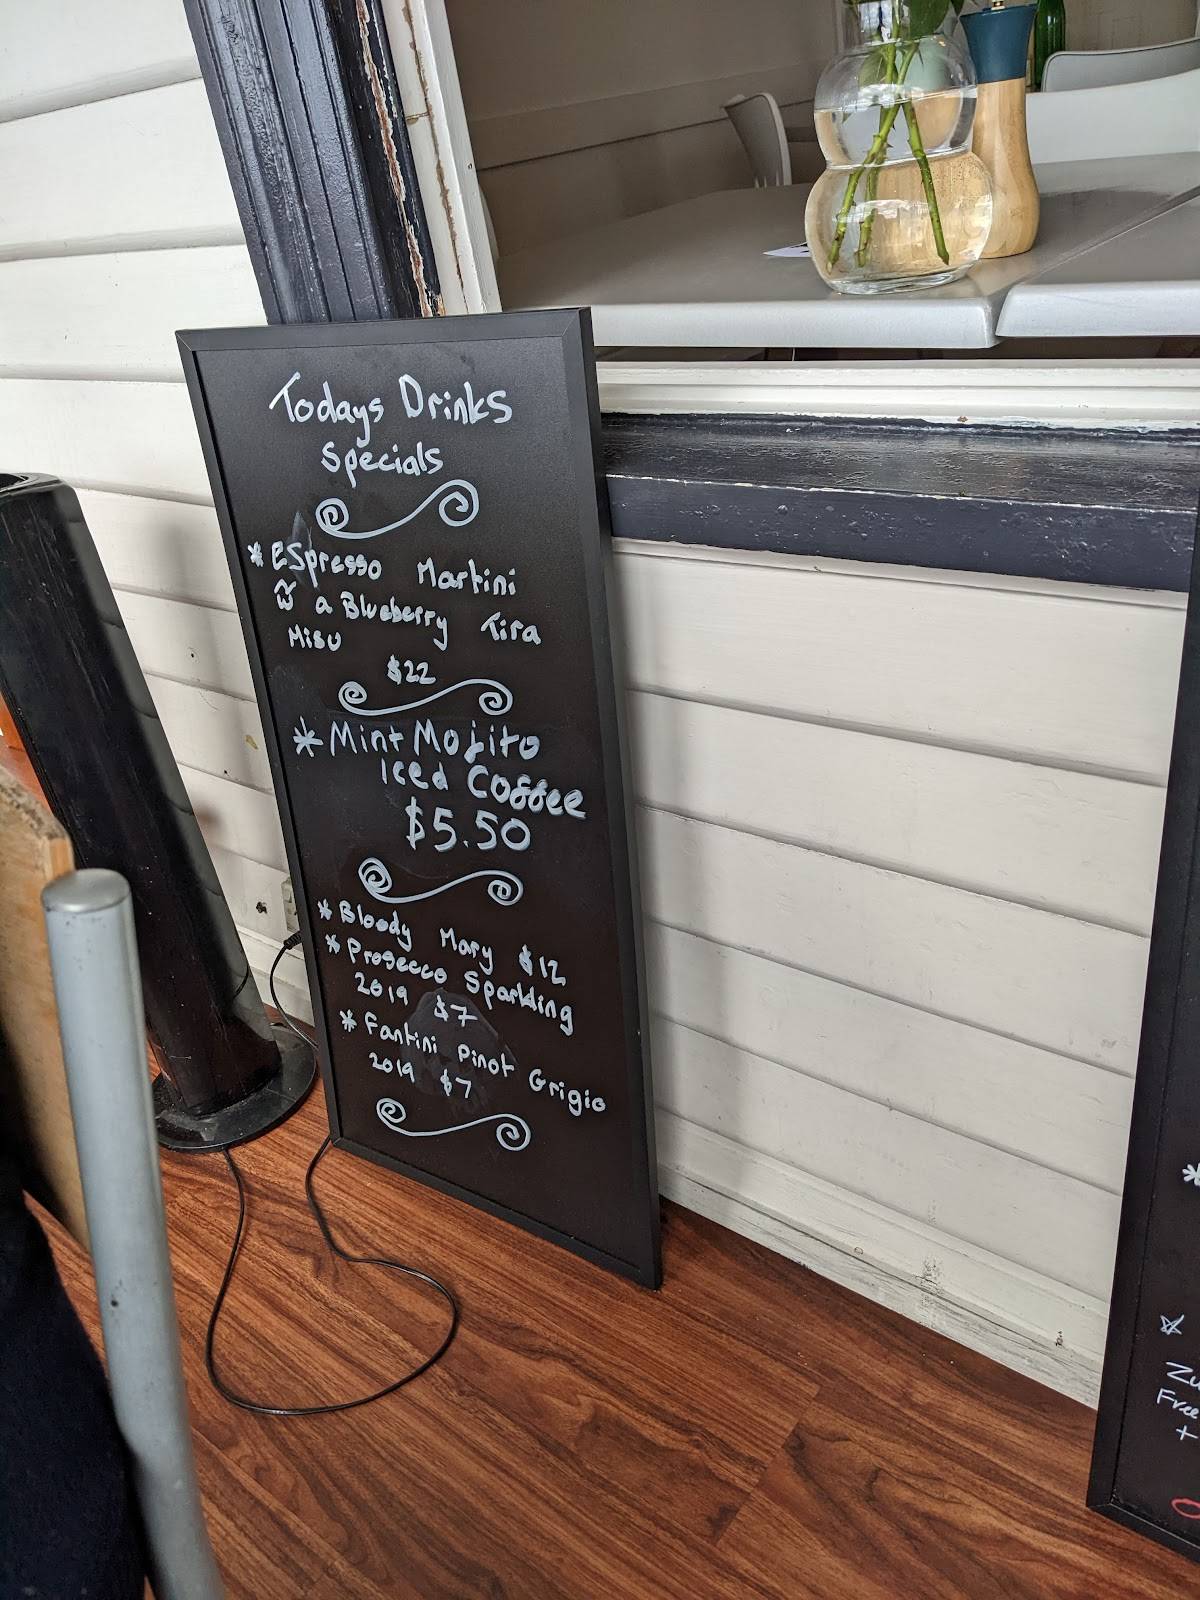 Todays Drinks
Specials
* Espresso Martini
w̃ a Blueberry Tira
Misu
$22
* Mint Mojito
Iced Coffee
$5.50
* Bloody Mary $12
* Prosecco Sparkling
2019 $7
* Fantini Pinot Grigio
2019 $7
Free
+